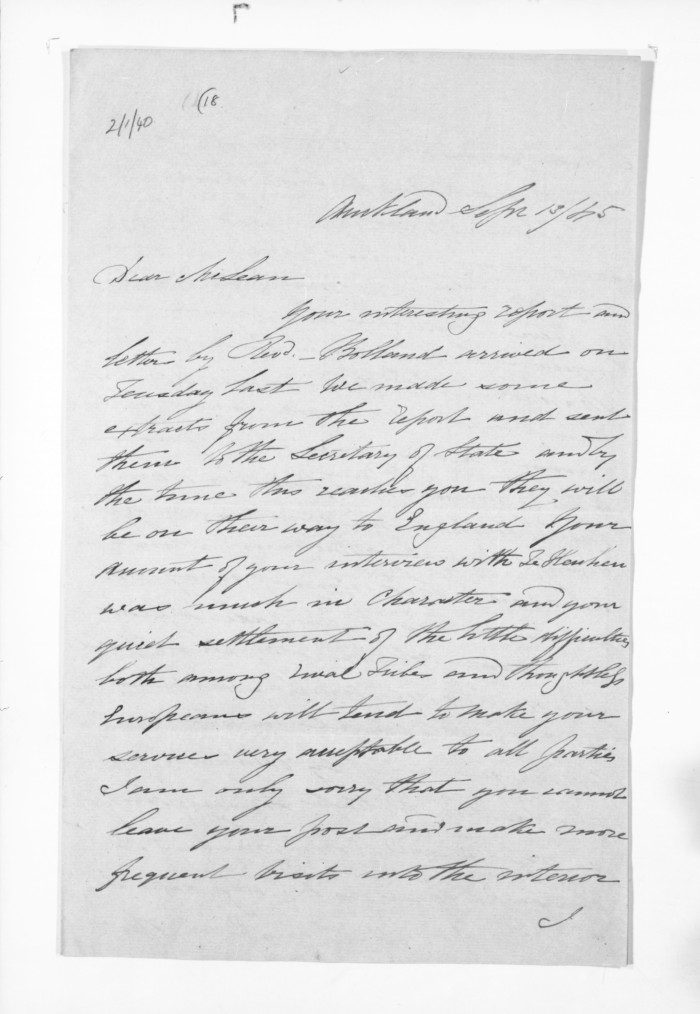 2/1/40 (18
Auckland Sepr 13/45
Dear McLean
Your interesting report and
letter by Revd. Bolland arrived on
Teusday last We made some
extracts from the report and sent
them to the Secretary of State and by
the time this reaches you they will
be on their way to England Your
amount of your interview with Te Heuheu
was much in Character and your
quiet settlement of the little difficulties
both among rival Tribes and thoughtless
Europeans will tend to make your
services very acceptable to all parties
I am only sorry that you cannot
leave your post and make more
frequent visits into the interior
I